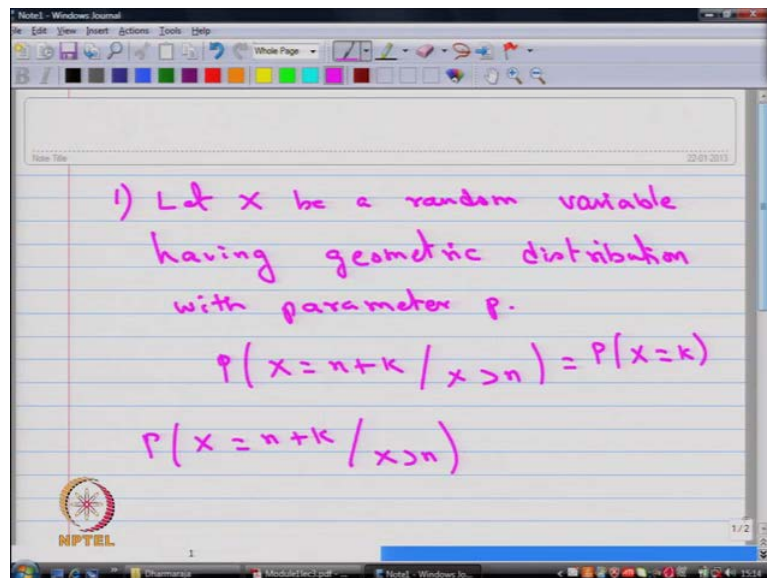 Note1 - Windows Journal
File Edit View Insert Actions Tools Help
Whole Page
Note Title
22-01-2013
1) Let X be a random variable
having geometric distribution
with parameter p.
P(X = n+k / X > n) = P(X = k)
P(X = n+k / X > n)
NPTEL
1
1/2
Dharmaraja
Module1lec3.pdf - ...
Note1 - Windows Jo...
15:14